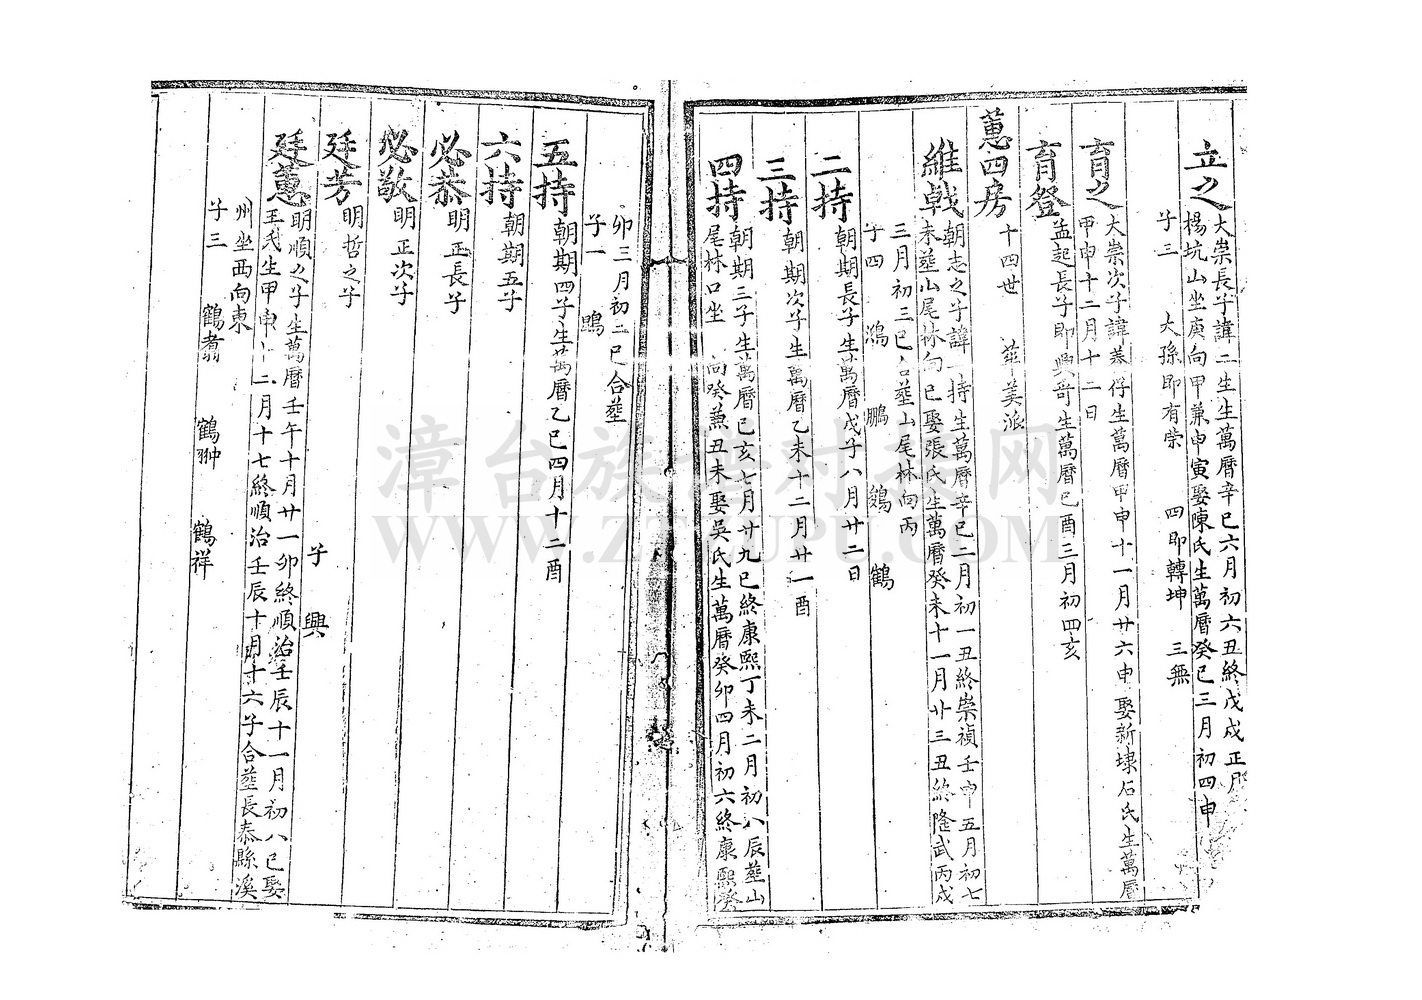 立之
大崇長子諱二生生萬曆辛巳六月初六丑終戊戌正月
楊坑山坐庚向甲兼申寅娶陳氏生萬曆癸巳三月初四申
子三 大孫即有崇 四即轉坤 三無
育之
大崇次子諱養仔生萬曆甲申十一月廿六申娶新埭石氏生萬曆
甲申十二月十二日
育登
孟起長子即興哥生萬曆己酉三月初四亥
蕙四房 十四世 華美派
維戟
朝志之子諱一持生萬曆辛巳二月初一丑終崇禎壬申五月初七
未葬山尾林向巳娶張氏生萬曆癸未十一月廿三丑終隆武丙戌
三月初三巳合葬山尾林向丙
子四 鴻 鵬 鵕 鶴
二持
朝期長子生萬曆戊子八月廿二日
三持
朝期次子生萬曆乙未十二月廿一酉
四持
朝期三子生萬曆己亥七月廿九巳終康熙丁未二月初八辰葬山
尾林口坐 向癸兼丑未娶吳氏生萬曆癸卯四月初六終康熙癸
卯三月初二巳合葬
子一 鵾
五持
朝期四子生萬曆乙巳四月十二酉
六持
朝期五子
必恭
明正長子
必敬
明正次子
廷芳
明哲之子
子 興
廷蕙
明順之子生萬曆壬午十月廿一卯終順治壬辰十一月初八巳娶
王氏生甲申十二月十七終順治壬辰十月十六子合葬長泰縣溪
州坐西向東
子三 鶴翥 鶴翀 鶴祥
漳台族譜对接网
WWW.ZTZUPU.COM